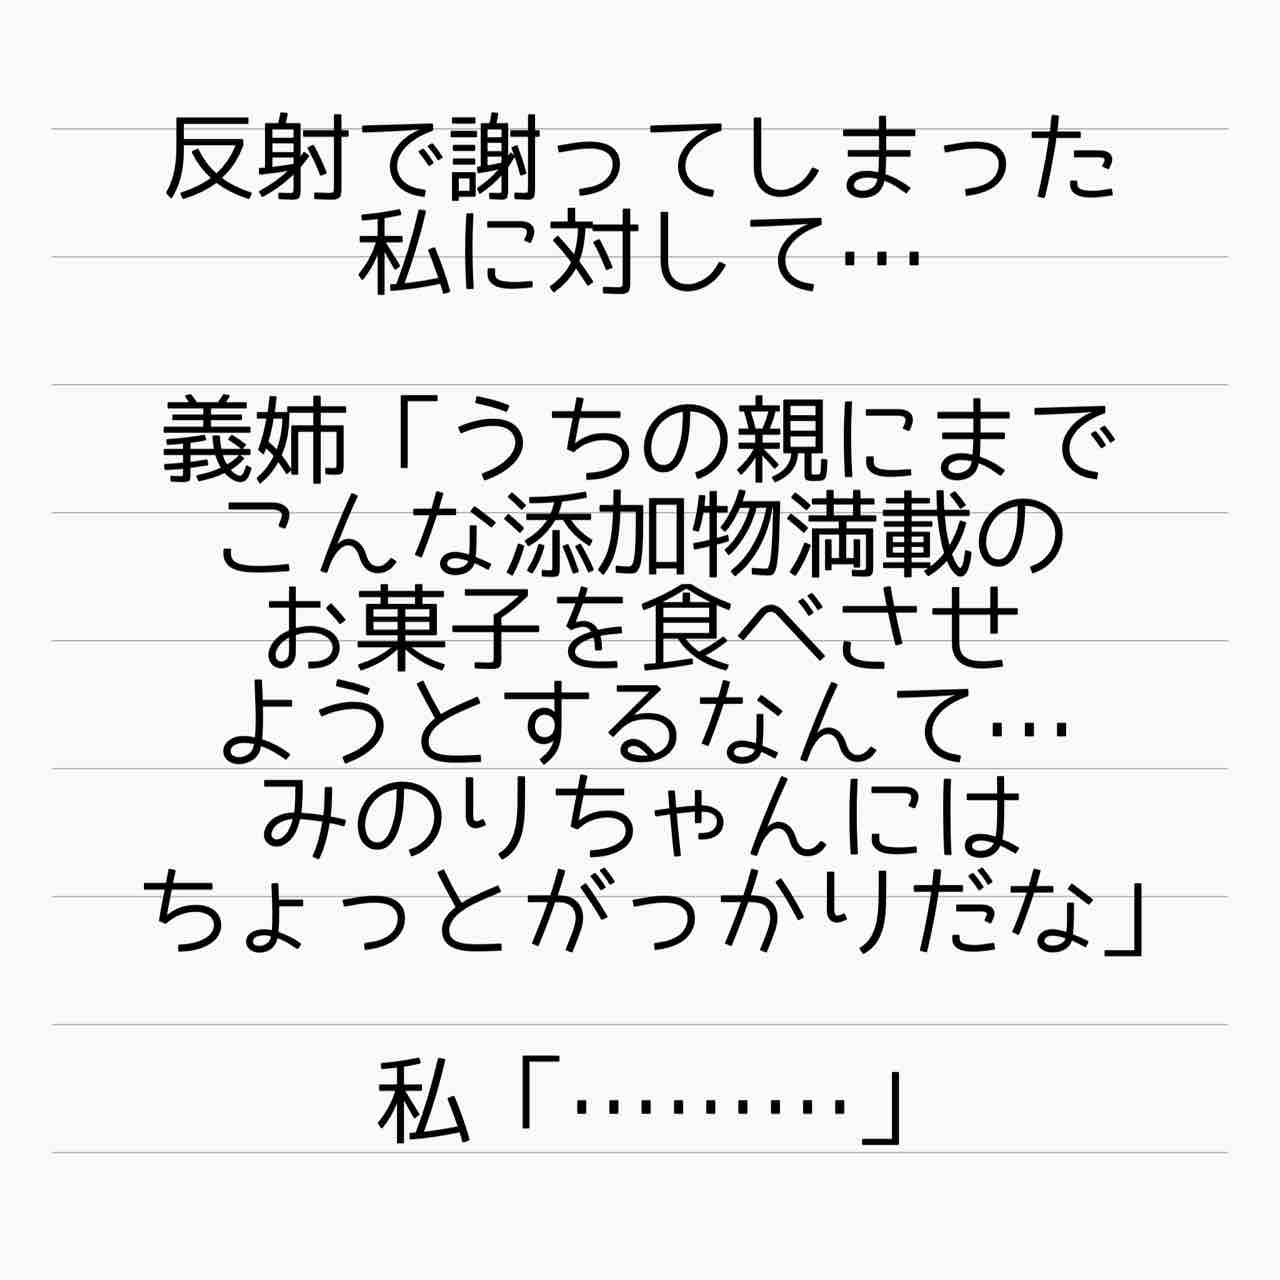 反射で謝ってしまった
私に対して…
義姉「うちの親にまで
こんな添加物満載の
お菓子を食べさせ
ようとするなんて…
みのりちゃんには
ちょっとがっかりだな」
私「………」